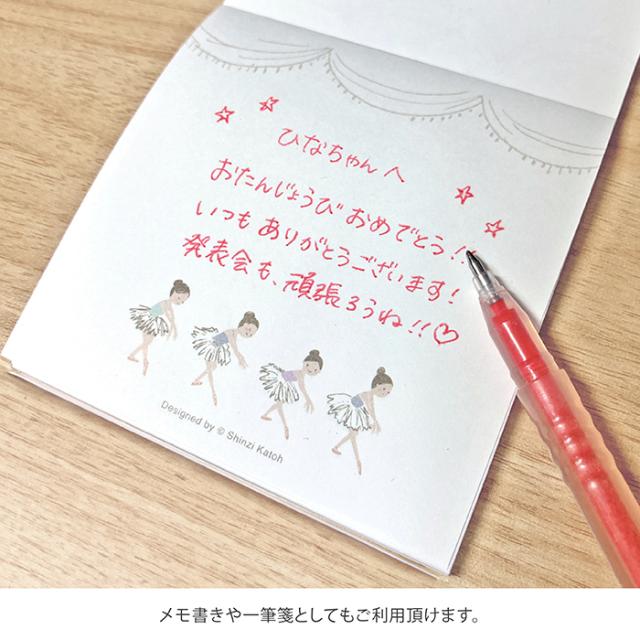 ひなちゃんへ
おたんじょうび おめでとう!!
いつも ありがとうございます!
発表会も、頑張ろうね!!♡
Designed by © Shinzi Katoh
メモ書きや一筆箋としてもご利用頂けます。